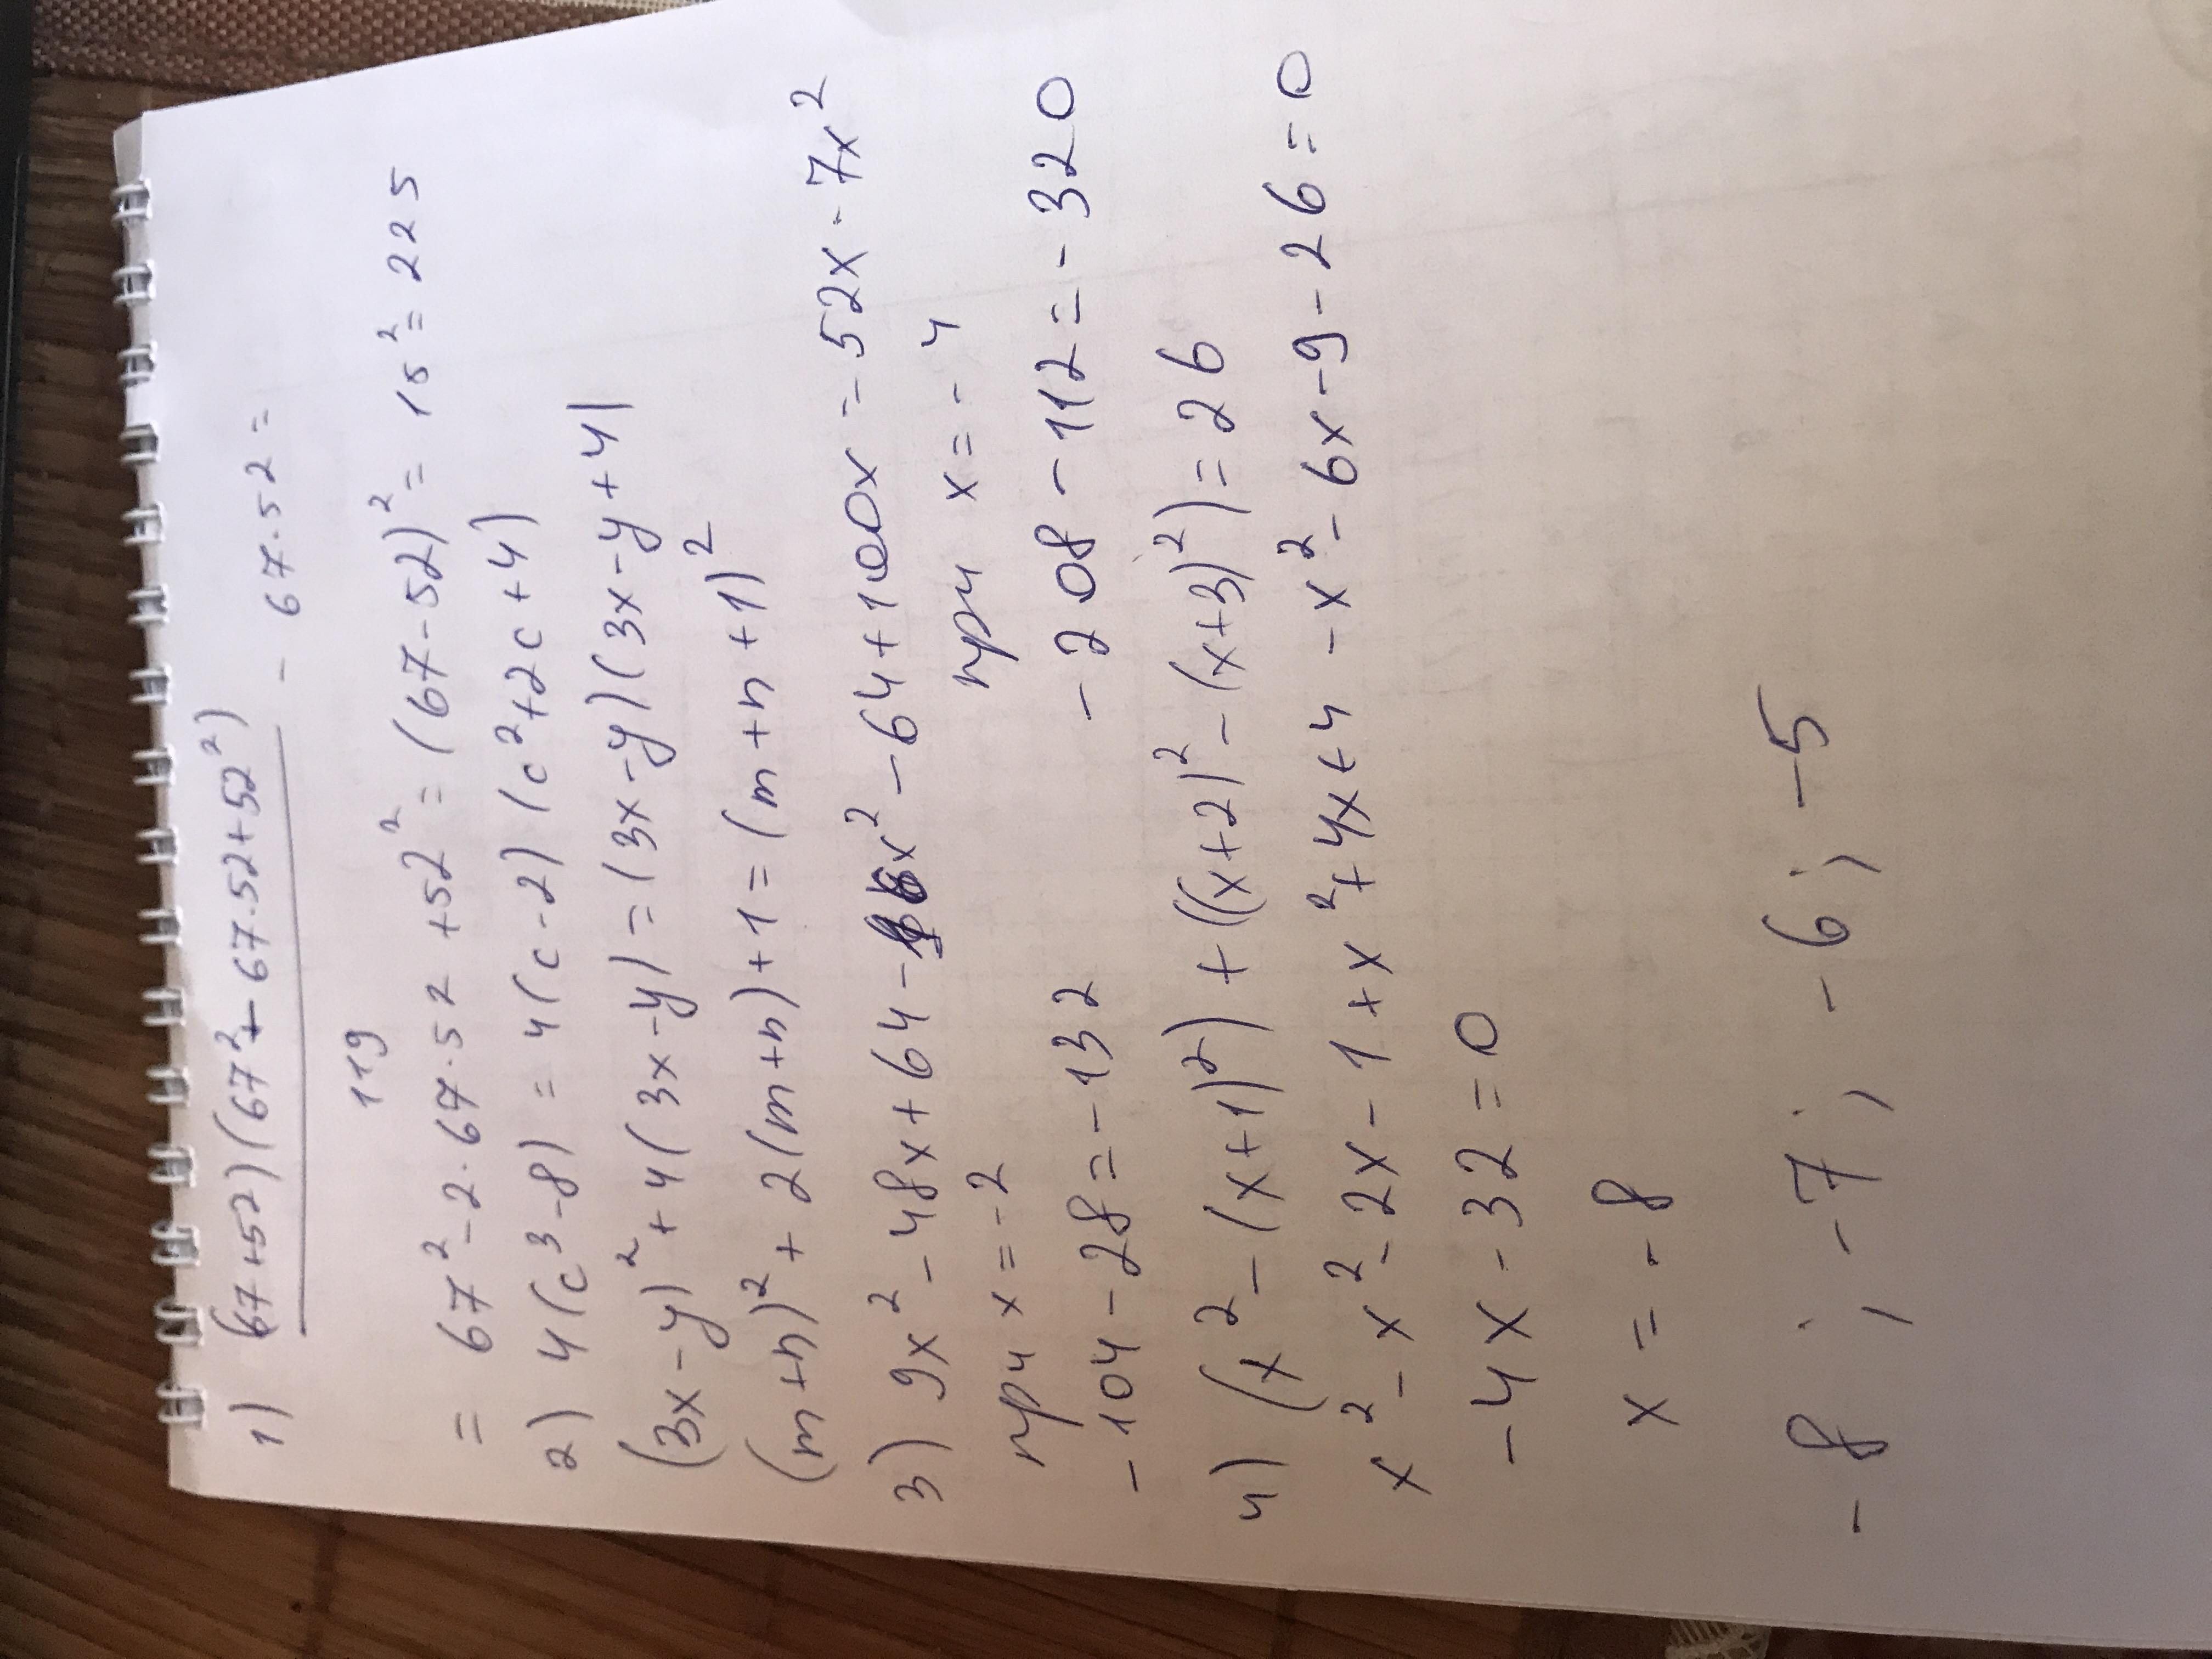 1) (67+52)(67²+ 67·52+52²) - 67·52 =
119
= 67²-2·67·52+52² = (67-52)² = 15² = 225
2) 4(c³-8) = 4(c-2)(c²+2c+4)
(3x-y)²+4(3x-y) = (3x-y)(3x-y+4)
(m+n)²+2(m+n)+1 = (m+n+1)²
3) 9x²-48x+64-16x²-64+100x = 52x-7x²
при x=-2 при x=-4
-104-28=-132 -208-112=-320
4) (x²-(x+1)²)+((x+2)²-(x+3)²)=26
x²-x²-2x-1+x²+4x+4-x²-6x-9-26=0
-4x-32=0
x=-8
-8; -7; -6; -5